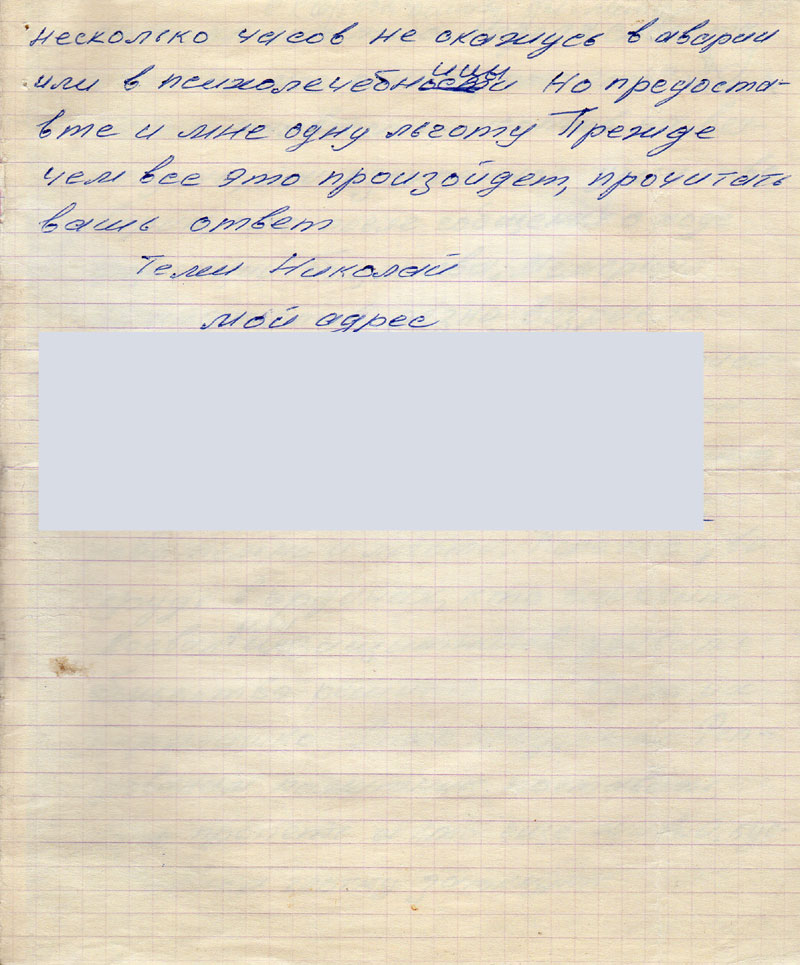 несколько часов не окажусь в аварии
или в психолечебнице Но предоста-
вте и мне одну льготу Прежде
чем все это произойдет, прочитать
вашь ответ
Николай
мой адрес